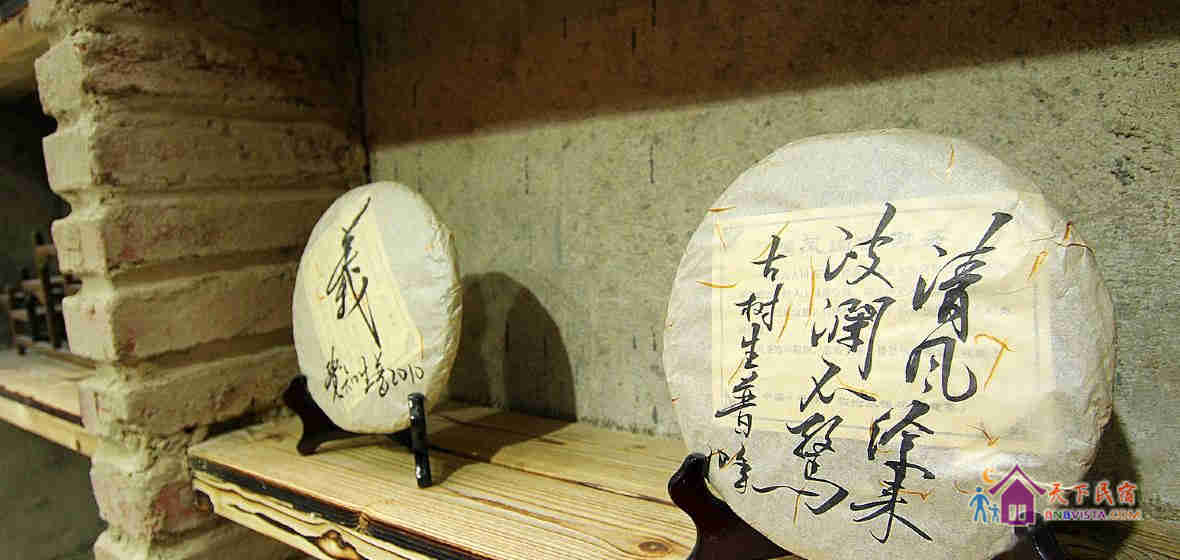 義
生普2010
清风徐来
波澜不驚
古树生普
天下民宿
BNBVISTA.COM